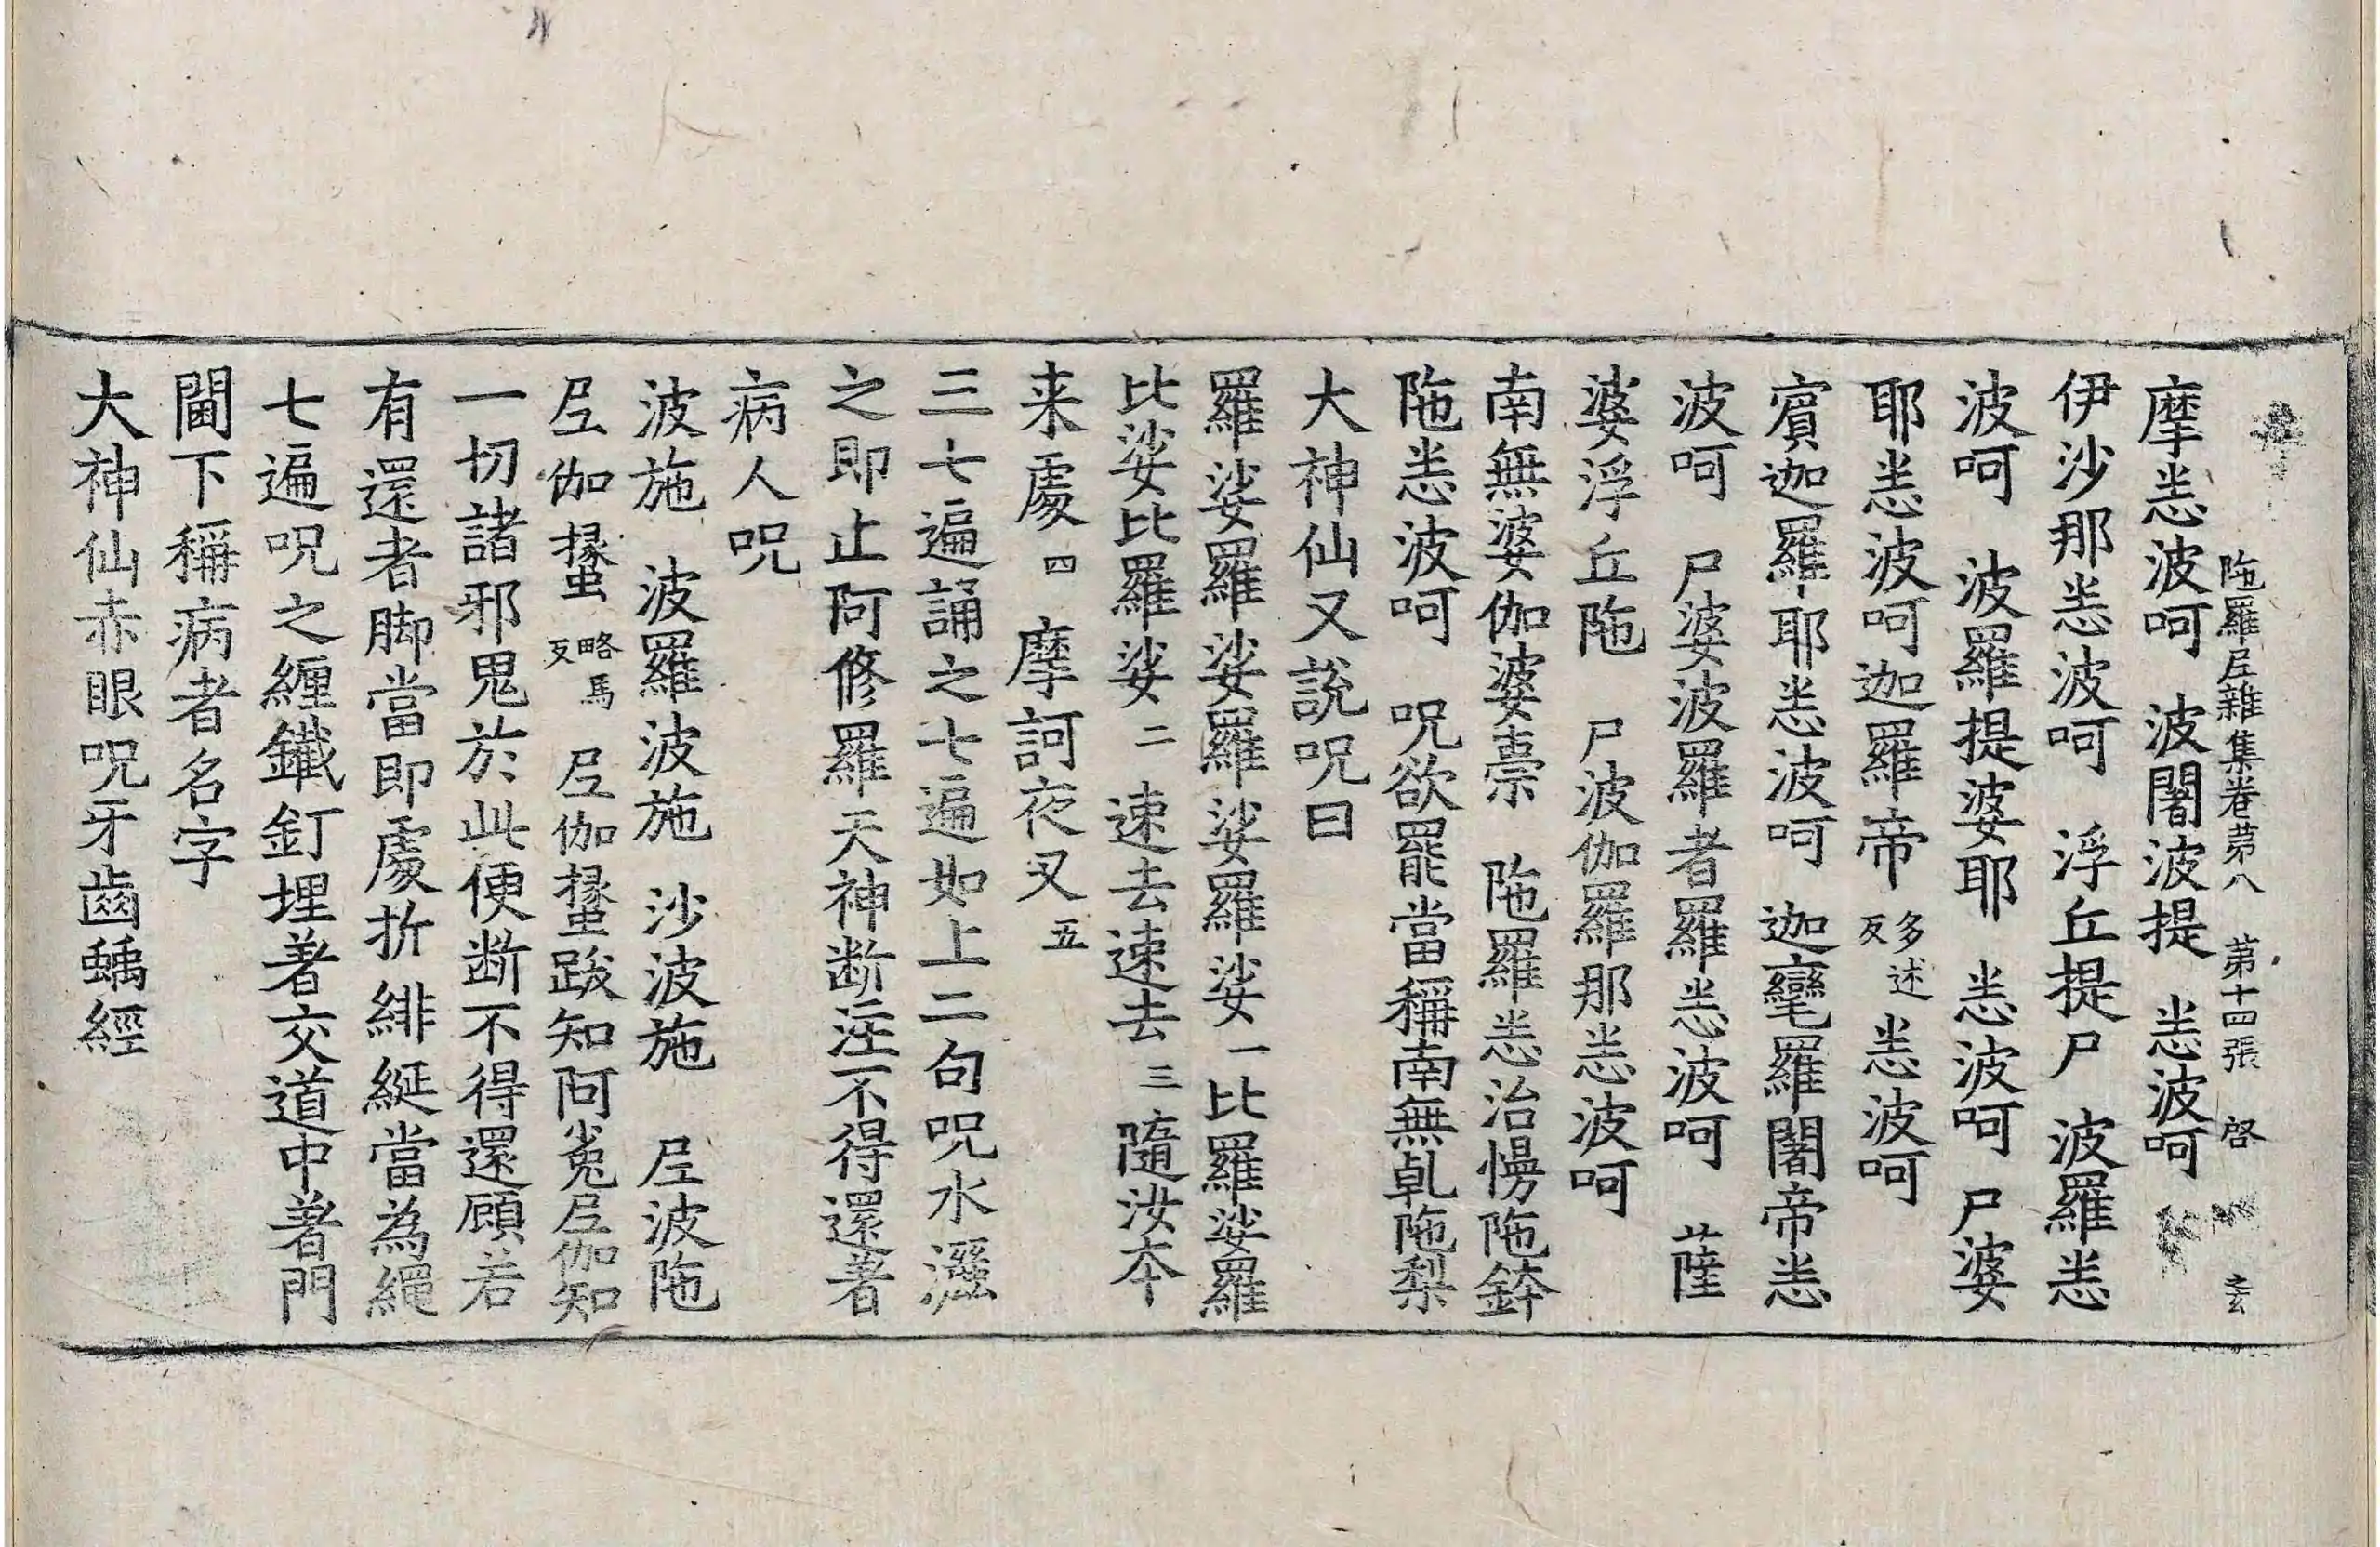 陁羅𡰱雜集卷第八　第十四張　啓
摩𢙣波呵　波闍波提　𢙣波呵
伊沙那𢙣波呵　浮丘提尸　波羅𢙣
波呵　波羅提婆耶　𢙣波呵　尸婆
耶𢙣波呵迦羅帝多述反𢙣波呵
賔迦羅耶𢙣波呵　迦毠羅闍帝𢙣
波呵　尸婆波羅者羅𢙣波呵　薩
婆浮丘陁　尸波伽羅那𢙣波呵
南無婆伽婆𣐈　陁羅𢙣治㦬陁鉢
陁𢙣波呵　呪欲罷當稱南無乹陁梨
大神仙又說呪曰
羅娑羅娑羅娑羅娑羅娑一比羅娑羅
比娑比羅娑二　速去速去三隨汝夲
来處四　摩訶夜叉五
三七遍誦之七遍如上二句呪水灑
之即止阿修羅天神断注不得還著
病人呪
波施　波羅波施　沙波施　𡰱波陁
𡰱伽㩡略馬反　𡰱伽㩡跋知阿㝹𡰱伽知
一切諸邪鬼於此便断不得還顧若
有還者脚當即處折緋綖當為繩
七遍呪之纏鐵釘埋著交道中著門
閫下稱病者名字
大神仙赤眼呪牙齒䗁經